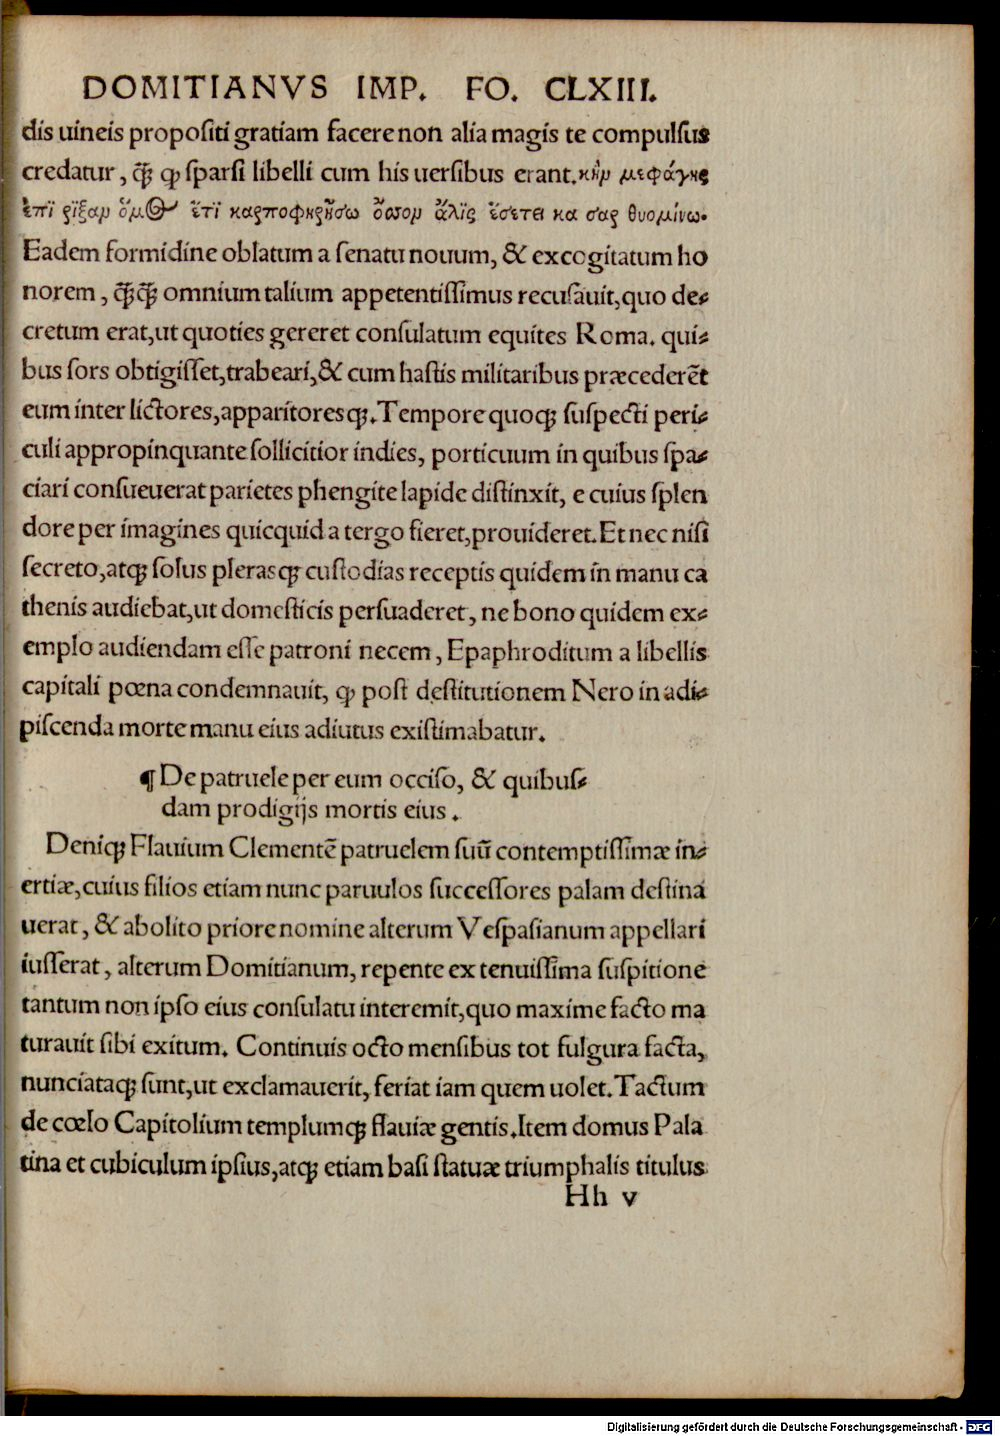 DOMITIANVS IMP. FO. CLXIII.
dis uineis propositi gratiam facere non alia magis te compulsus
credatur, q̃ꝫ ꝙ sparsi libelli cum his uersibus erant. κἤν μεφάγης
ἐπὶ ῥίζαν ὅμως ἔτι καρποφορήσω ὅσσον ἅλις ἔσεται κα σαρ θυομίνω.
Eadem formidine oblatum a senatu nouum, & excogitatum ho
norem, q̃ꝫq̃ꝫ omnium talium appetentissimus recusauit, quo de-
cretum erat, ut quoties gereret consulatum equites Roma. qui-
bus sors obtigisset, trabeari, & cum hastis militaribus præcederẽt
eum inter lictores, apparitoresqꝫ. Tempore quoqꝫ suspecti peri-
culi appropinquante sollicitior indies, porticuum in quibus spa-
ciari consueuerat parietes phengite lapide distinxit, e cuius splen
dore per imagines quicquid a tergo fieret, prouideret. Et nec nisi
secreto, atqꝫ solus plerasqꝫ custodias receptis quidem in manu ca
thenis audiebat, ut domesticis persuaderet, ne bono quidem ex-
emplo audiendam esse patroni necem, Epaphroditum a libellis
capitali pœna condemnauit, ꝙ post destitutionem Nero in adi-
piscenda morte manu eius adiutus existimabatur.
¶ De patruele per eum occiso, & quibus-
dam prodigijs mortis eius.
Deniqꝫ Flauium Clementẽ patruelem suũ contemptissimæ in-
ertiæ, cuius filios etiam nunc paruulos successores palam destina
uerat, & abolito priore nomine alterum Vespasianum appellari
iusserat, alterum Domitianum, repente ex tenuissima suspitione
tantum non ipso eius consulatu interemit, quo maxime facto ma
turauit sibi exitum. Continuis octo mensibus tot fulgura facta,
nunciataqꝫ sunt, ut exclamauerit, feriat iam quem uolet. Tactum
de cœlo Capitolium templumqꝫ flauiæ gentis. Item domus Pala
tina et cubiculum ipsius, atqꝫ etiam basi statuæ triumphalis titulus
Hh v
Digitalisierung gefördert durch die Deutsche Forschungsgemeinschaft - DFG